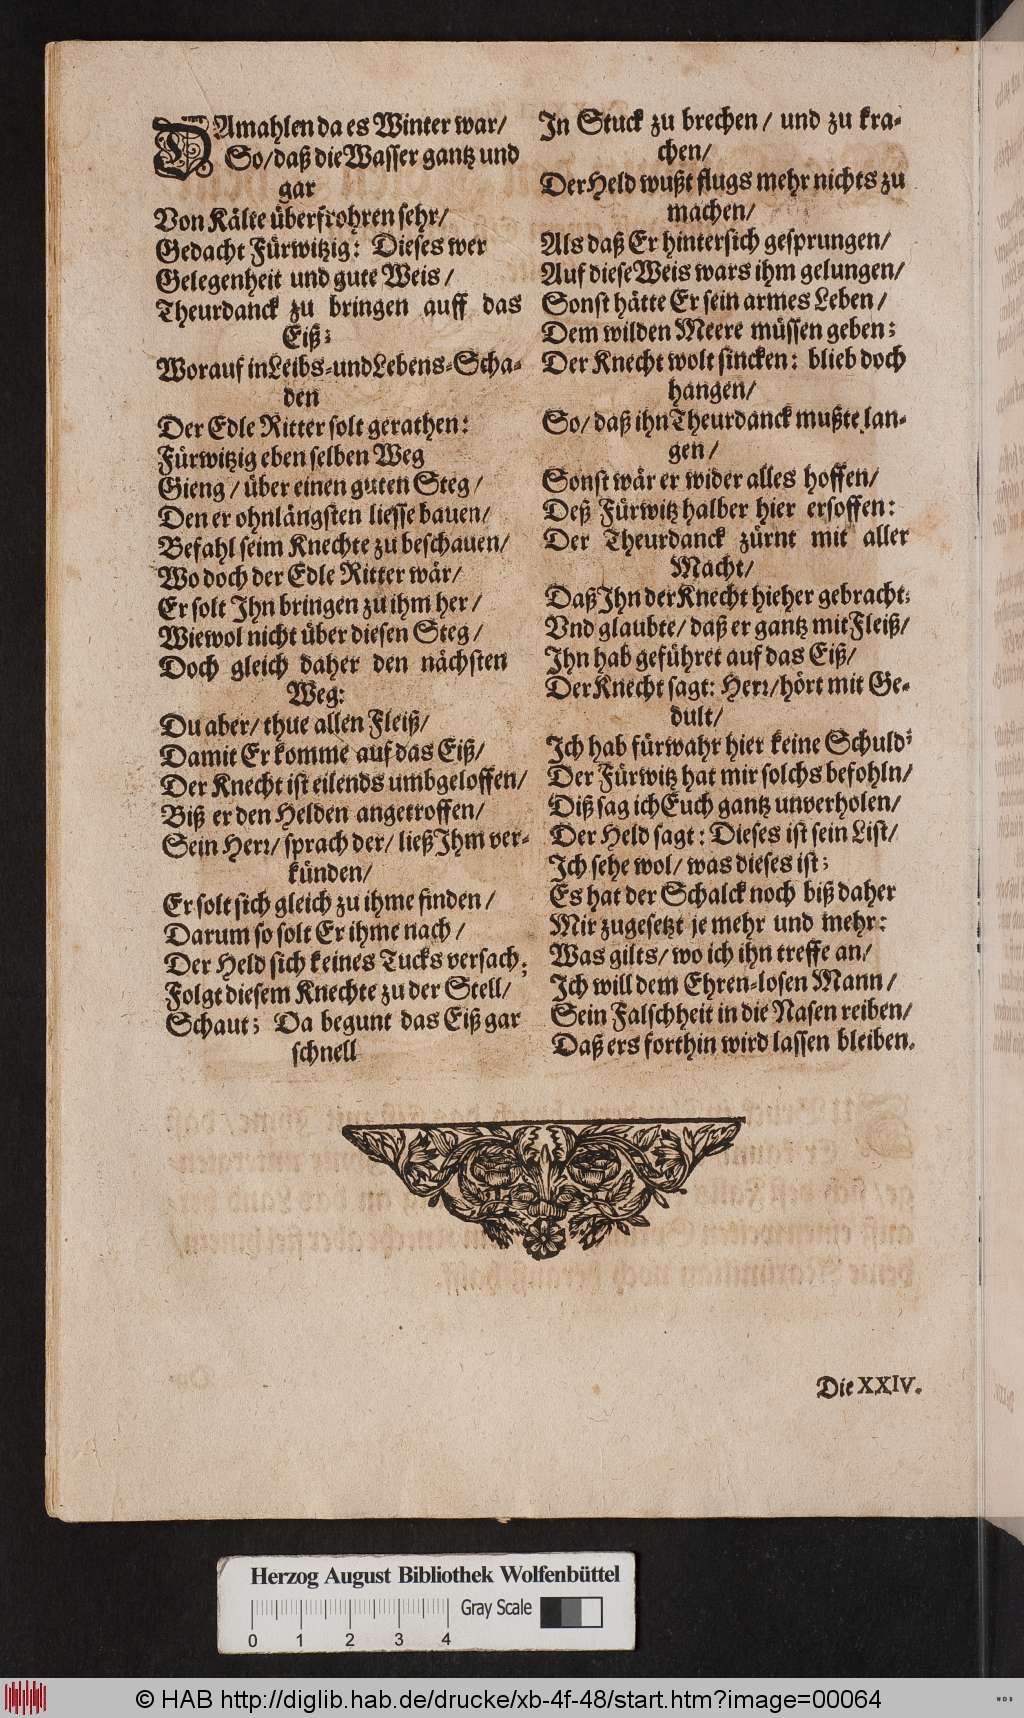 DAmahlen da es Winter war/
So/ daß die Wasser gantz und
gar
Von Kälte überfrohren sehr/
Gedacht Fürwitzig: Dieses wer
Gelegenheit und gute Weis/
Theurdanck zu bringen auff das
Eiß;
Worauf in Leibs-und Lebens-Scha-
den
Der Edle Ritter solt gerathen:
Fürwitzig eben selben Weg
Gieng/ über einen guten Steg/
Den er ohnlängsten liesse bauen/
Befahl seim Knechte zu beschauen/
Wo doch der Edle Ritter wär/
Er solt Ihn bringen zu ihm her/
Wiewol nicht über diesen Steg/
Doch gleich daher den nächsten
Weg:
Du aber/ thue allen Fleiß/
Damit Er komme auf das Eiß/
Der Knecht ist eilends umbgeloffen/
Biß er den Helden angetroffen/
Sein Herr/ sprach der/ ließ Ihm ver-
künden/
Er solt sich gleich zu ihme finden/
Darum so solt Er ihme nach/
Der Held sich keines Tucks versach;
Folgt diesem Knechte zu der Stell/
Schaut; Da begunt das Eiß gar
schnell
In Stuck zu brechen/ und zu kra-
chen/
Der Held wußt flugs mehr nichts zu
machen/
Als daß Er hintersich gesprungen/
Auf diese Weis wars ihm gelungen/
Sonst hätte Er sein armes Leben/
Dem wilden Meere müssen geben;
Der Knecht wolt sincken: blieb doch
hangen/
So/ daß ihn Theurdanck mußte lan-
gen/
Sonst wär er wider alles hoffen/
Deß Fürwitz halber hier ersoffen:
Der Theurdanck zürnt mit aller
Macht/
Daß Ihn der Knecht hieher gebracht;
Vnd glaubte/ daß er gantz mit Fleiß/
Ihn hab geführet auf das Eiß/
Der Knecht sagt: Herr/ hört mit Ge-
dult/
Ich hab fürwahr hier keine Schuld;
Der Fürwitz hat mir solchs befohln/
Diß sag ich Euch gantz unverholen/
Der Held sagt: Dieses ist sein List/
Ich sehe wol/ was dieses ist;
Es hat der Schalck noch biß daher
Mir zugesetzt je mehr und mehr:
Was gilts/ wo ich ihn treffe an/
Ich will dem Ehren-losen Mann/
Sein Falschheit in die Nasen reiben/
Daß ers forthin wird lassen bleiben.
Die XXIV.
Herzog August Bibliothek Wolfenbüttel
Gray Scale
0 1 2 3 4
© HAB http://diglib.hab.de/drucke/xb-4f-48/start.htm?image=00064